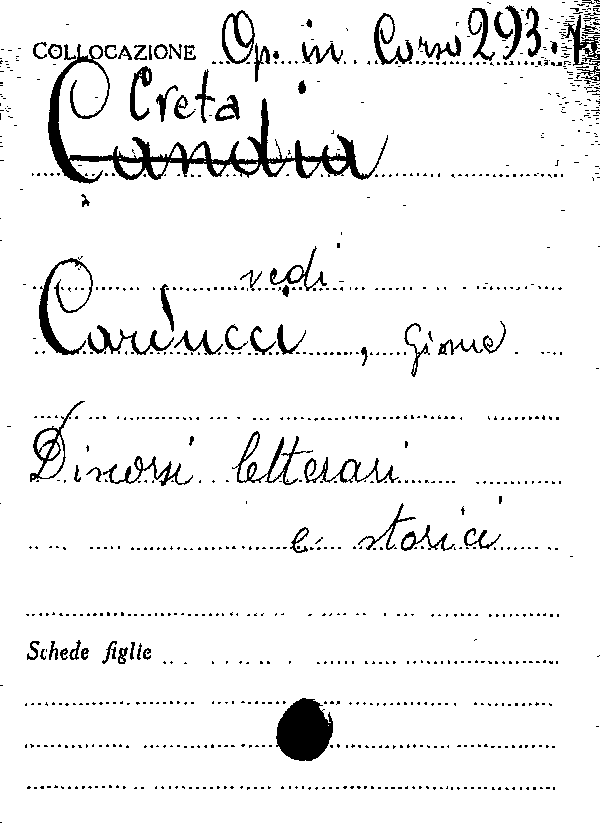 COLLOCAZIONE Op. in Corso 293.7.
Creta
Candia
vedi
Carducci, Giosue
Discorsi letterari
e storici
Schede figlie